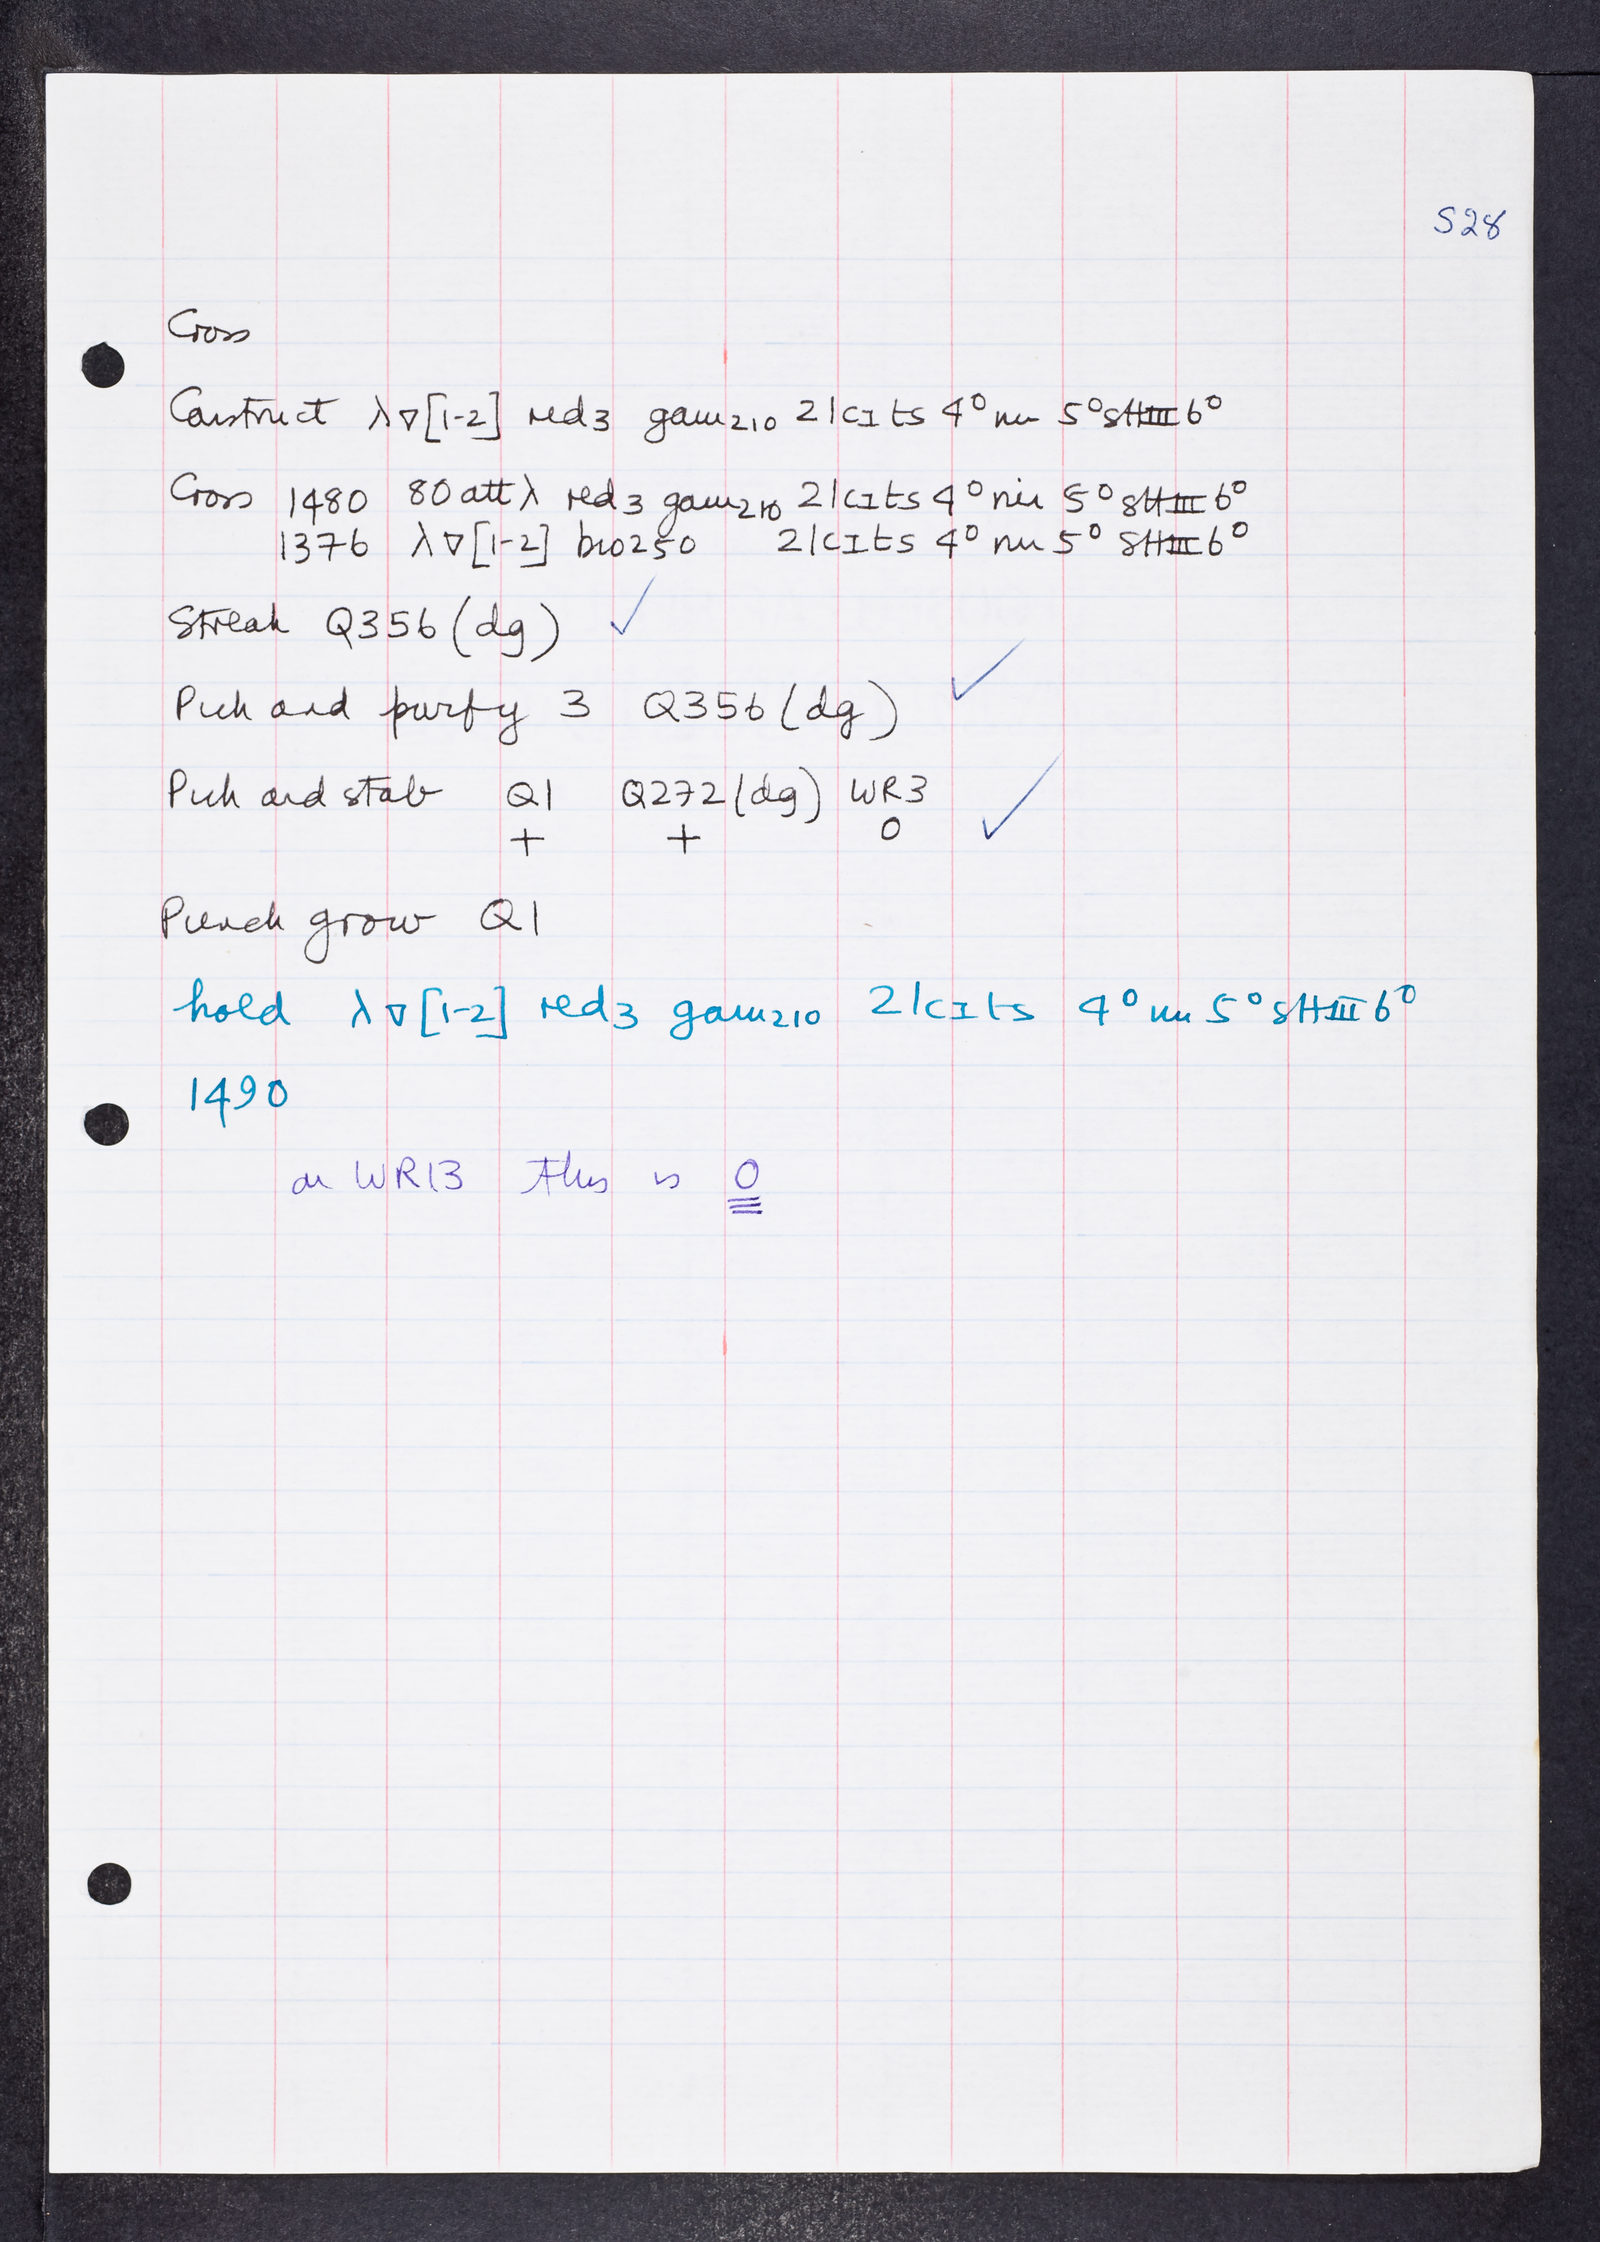 S28
Cross
Construct λ∇[1-2] red3 gam210 21cIts 4° nin 5° sHIII6°
Cross 1480 80attλ red3 gam210 21cIts 4° nin 5° sHIII6°
1376 λ∇[1-2] bio250 21cIts 4° nin 5° sHIII6°
Streak Q356(dg) ✓
Pick and purify 3 Q356(dg) ✓
Pick and stab Q1 Q272(dg) WR3 ✓
+ + 0
grow Q1
hold λ∇[1-2] red3 gam210 21cIts 4° nin 5° sHIII6°
1490
on WR13 this is 0